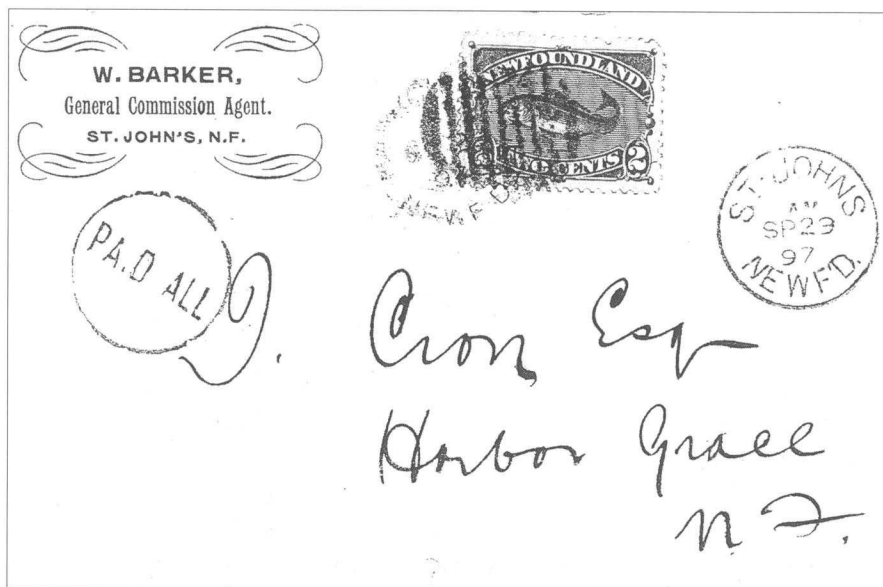 W. BARKER,
General Commission Agent.
ST. JOHN'S, N.F.
NEWFOUNDLAND
TWO CENTS 2
NEWF'D
PAID ALL
ST. JOHNS
AM
SP 29
97
NEWF'D.
Cron Esq
Harbor Grace
N. F.